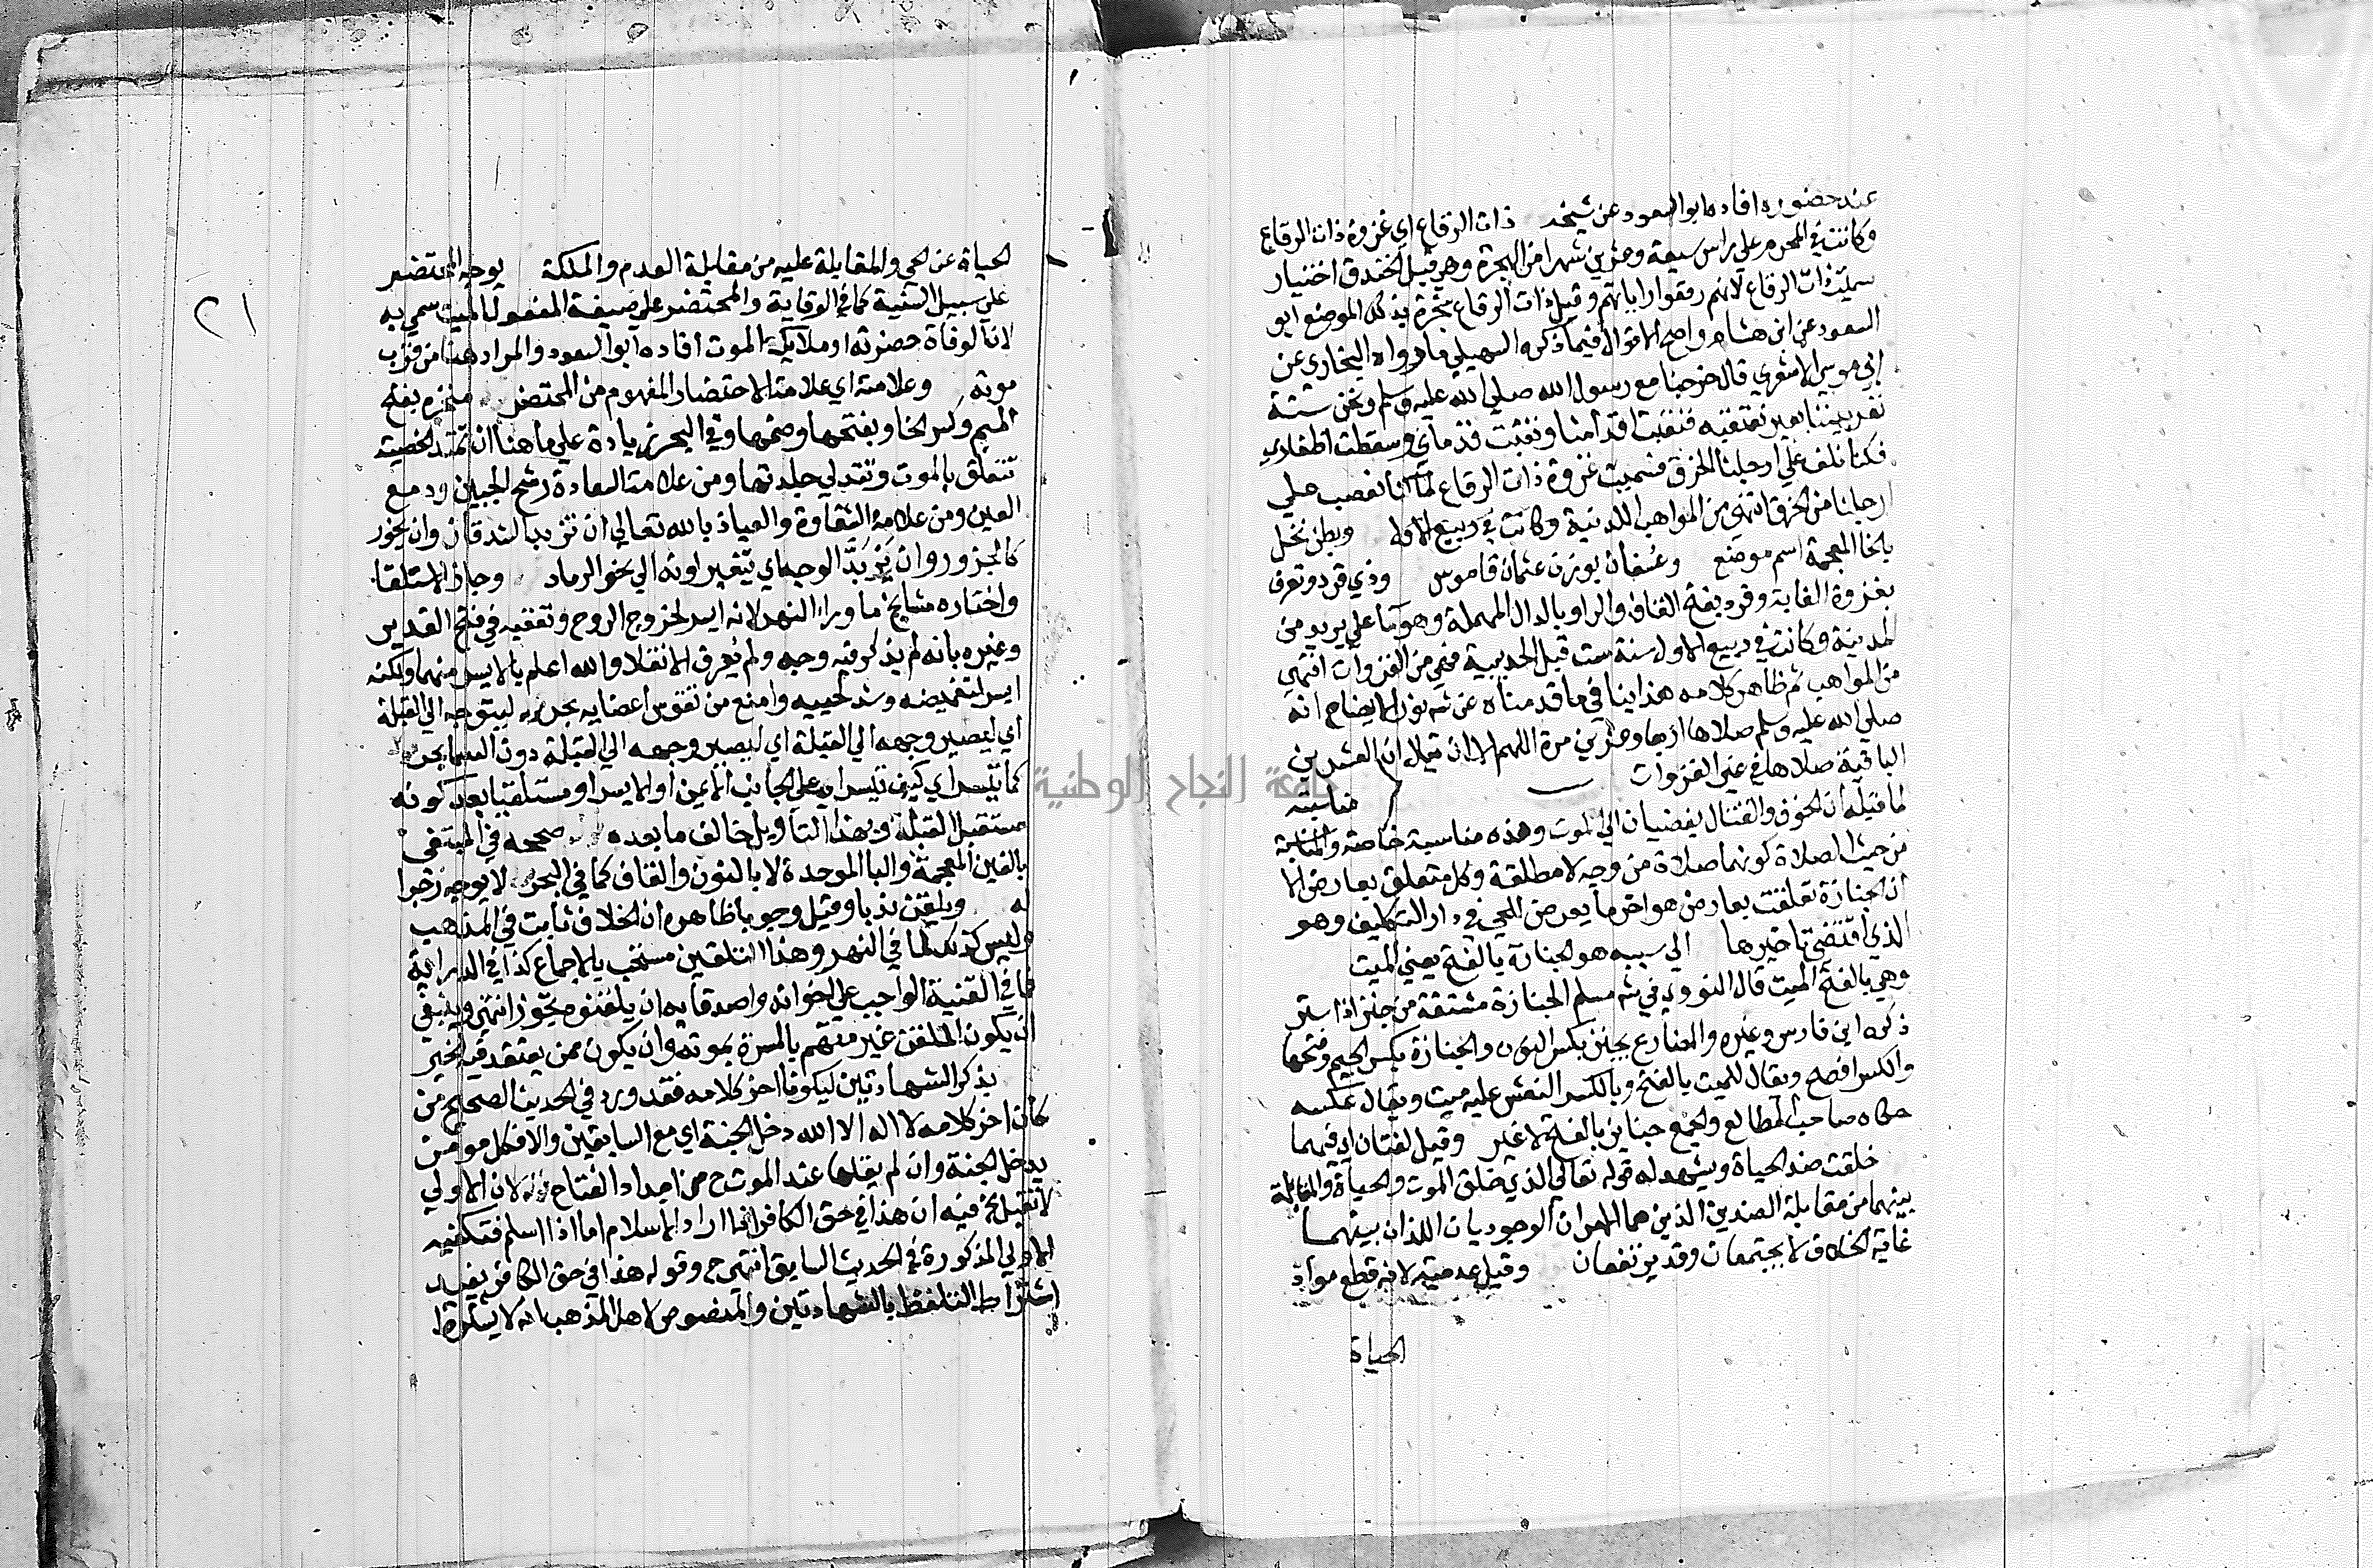 عند حضوره افاده ابو السعود عن شيخه ذات الرقاع اي غزوة ذات الرقاع
وكانت في المحرم علي راس سبعة وعشرين شهرا من الهجرة وهي قبل الخندق اختيار
سميت ذات الرقاع لانهم رقعوا راياتهم وقيل ذات الرقاع شجرة بذلك الموضع ابو
السعود عن ابن هشام واصح الاقوال فيما ذكره السهيلي ما رواه البخاري عن
ابي موسي الاشعري قال خرجنا مع رسول الله صلي الله عليه وسلم ونحن ستة
نفر بيننا بعير نعتقبه فنقبت اقدامنا ونقبت قدماي وسقطت اظفاري
فكنا نلف علي ارجلنا الخرق فسميت غزوة ذات الرقاع لما كنا نعصب علي
ارجلنا من الخرق انتهي من المواهب اللدنية وكانت في ربيع الاول وبطن نخل
بالخا المعجمة اسم موضع وعسفان بوزن عثمان قاموس وذي قرد وتعرف
بغزوة الغابة وقرد بفتح القاف والرا وبالدال المهملة وهو ما علي بريد من
المدينة وكانت في ربيع الاول سنة ست قبل الحديبية فهي من الغزوات انتهي
من المواهب ثم ظاهر كلامه هذا ينافي ما قدمناه عن شه نور الايضاح انه
صلي الله عليه وسلم صلاها اربعا وعشرين مرة اللهم الا ان قيل ان العشرين
الباقية صلاها في غير الغزوات
مناسبته
لما قبله ان الخوف والقتال يفضيان الي الموت وهذه مناسبة خاصة والمناسبة
من حيث الصلاة كونها صلاة من وجه لا مطلقة وكل متعلق بعارض الا
ان الجنازة تعلقت بعارض هو اخر ما يعرض للحي في دار التكليف وهو
الذي اقتضي تاخيرها الي سببه هو الجنازة بالفتح يعني الميت
وهي بالفتح الميت قال النووي في شه مسلم الجنازة مشتقة من جنز اذا ستر
ذكره ابن فارس وغيره والمضارع يجنز بكسر النون والجنازة بكسر الجيم وفتحها
والكسر افصح ويقال للميت بالفتح وبالكسر النعش عليه ميت ويقال عكسه
حكاه صاحب المطالع والجمع جنايز بالفتح لا غير وقيل لغتان اي فيهما
خلقت ضد الحياة ويشهد له قوله تعالي الذي خلق الموت والحياة والمقابلة
بينهما من مقابلة الضدين الذين هما الامران الوجوديان اللذان بينهما
غاية الخلاف لا يجتمعان وقد يرتفعان وقيل عدمية لانه قطع مواد
الحياة
٢١
الحياة عن الحي والمقابلة عليه من مقابلة العدم والملكة يوجه المحتضر
علي سبيل السنية كما في الوقاية والمحتضر علي صيغة المفعول الميت سمي به
لان الوفاة حضرته او ملايكة الموت افاده ابو السعود والمراد هنا من قرب
موته وعلامته اي علامة الاحتضار المفهوم من المحتضر منخره بفتح
الميم وكسر الخا وبفتحهما وضمهما وفي البحر زيادة علي ما هنا ان تمتد الخصية
تتعلق بالموت وتتدلي جلدتها ومن علامة السعادة رشح الجبين ودمع
العين ومن علامة الشقاوة والعياذ بالله تعالي ان تزبد الشدقان وان يخور
كالجزور وان يَرْبَدَّ الوجه اي يتغير لونه الي نحو الرماد وجاز الاستلقا
واختاره مشايخ ما وراء النهر لانه ايسر لخروج الروح وتعقبه في فتح القدير
وغيره بانه لم يذكر فيه وجه ولم يُعرف الا نقلا والله اعلم بالايسر منهما ولكنه
ايسر لتغميضه وشد لحييه وامنع من تقوس اعضايه بحر ليتوجه الي القبلة
اي ليصير وجهه الي القبلة اي ليصير وجهه الي القبلة دون السما بحر
كما تيسر اي كيف تيسر اي علي الجانب الايمن او الايسر او مستلقيا بعد كونه
مستقبل القبلة وبهذا التاويل خالف ما بعده صححه في المبتغي
بالغين المعجمة والبا الموحدة لا بالنون والقاف كما في البحر لا يوجه زجرا
له ويلقن ندبا وقيل وجوبا ظاهره ان الخلاف ثابت في المذهب
وليس كذلك لما في النهر وهذا التلقين مستحب بالاجماع كذا في الدراية
فما في القنية الواجب علي اخوانه واصدقايه ان يلقنوه تجوز انتهي وينبغي
ان يكون الملقن غير متهم بالمسرة بموته وان يكون ممن يعتقد فيه الخير
بذكر الشهادتين ليكونا اخر كلامه فقد ورد في الحديث الصحيح من
كان اخر كلامه لا اله الا الله دخل الجنة اي مع السابقين والا فكل مومن
يدخل الجنة وان لم يقلها عند الموت ح من امداد الفتاح لان الاولي
لا تقبل الخ فيه ان هذا في حق الكافر اذا اراد الاسلام اما اذا اسلم فتكفيه
الاولي المذكورة في الحديث السابق انتهي ح وقوله هذا في حق الكافر يفيد
اشتراط التلفظ بالشهادتين والمنصوص لاهل المذهب انه لا يشترط
جامعة النجاح الوطنية